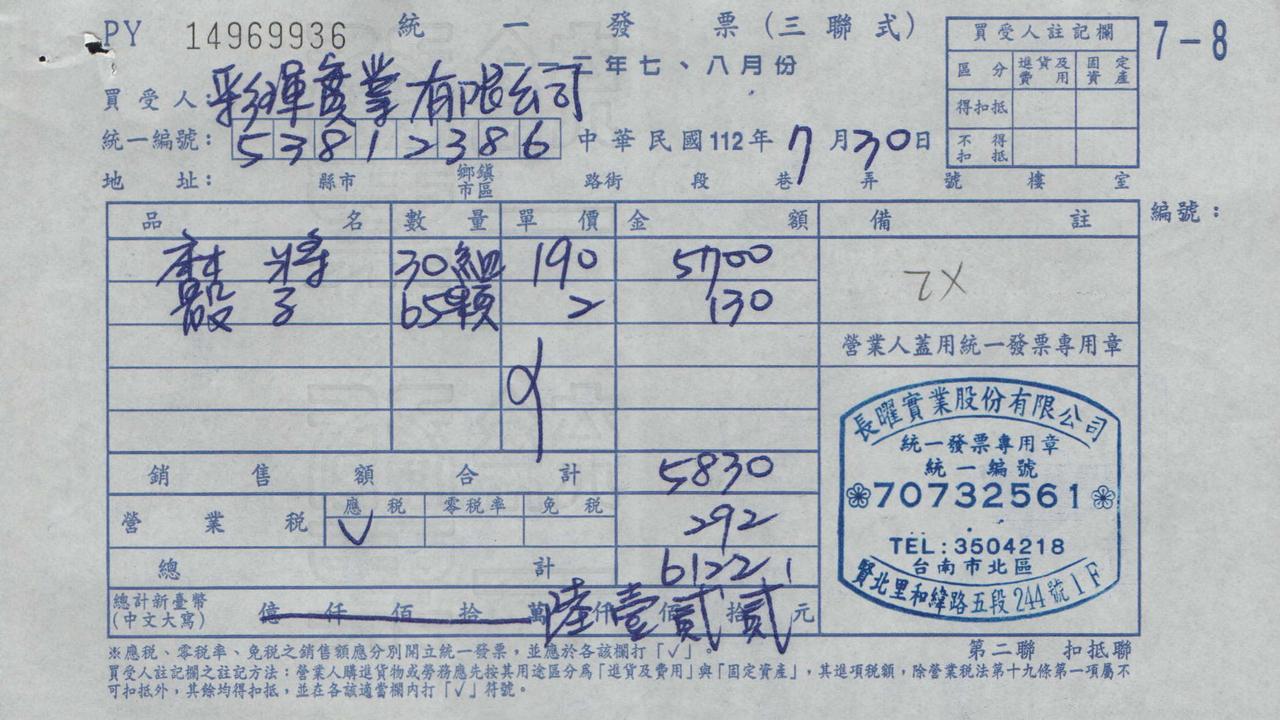 PY 14969936 統一發票(三聯式) 7-8
一一二年七、八月份
買受人註記欄
區分 進貨及費用 固定資產
得扣抵
不得扣抵
買受人:彩琿實業有限公司
統一編號:53812386 中華民國112年7月30日
地址: 縣市 鄉鎮市區 路街 段 巷 弄 號 樓 室
品名 數量 單價 金額 備註 編號:
麻將 30組 190 5700
骰子 65顆 2 130
營業人蓋用統一發票專用章
銷售額合計 5830
營業稅 應稅 零稅率 免稅 292
√
總計 6122
總計新臺幣(中文大寫) 億仟佰拾萬陸仟壹佰貳拾貳元
長曜實業股份有限公司
統一發票專用章
統一編號
70732561
TEL:3504218
台南市北區
賢北里和緯路五段244號1F
第二聯 扣抵聯
※應稅、零稅率、免稅之銷售額應分別開立統一發票,並應於各該欄打「√」。
買受人註記欄之註記方法:營業人購進貨物或勞務應先按其用途區分為「進貨及費用」與「固定資產」,其進項稅額,除營業稅法第十九條第一項屬不
可扣抵外,其餘均得扣抵,並在各該適當欄內打「√」符號。